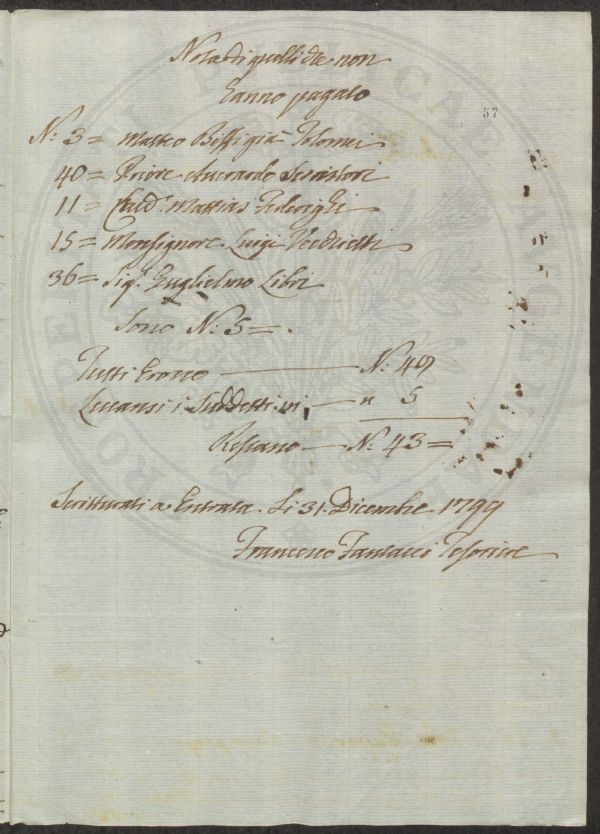 Nota di quelli che non
hanno pagato
57
N.º 3 = Matteo Biffi già Tolomei
40 = Priore Averardo Serristori
11 = Cav.ʳ Mattias Federighi
15 = Monsignore Luigi
36 = Sig.ʳ Guglielmo Libri
Sono N.º 5 =.
Tutti Erono — N.º 48
Levansi i Suddetti — n 5
Restano — N.º 43 =
Scritturati a Entrata. Li 31. Dicembre 1799
Francesco Fantacci Tesoriere